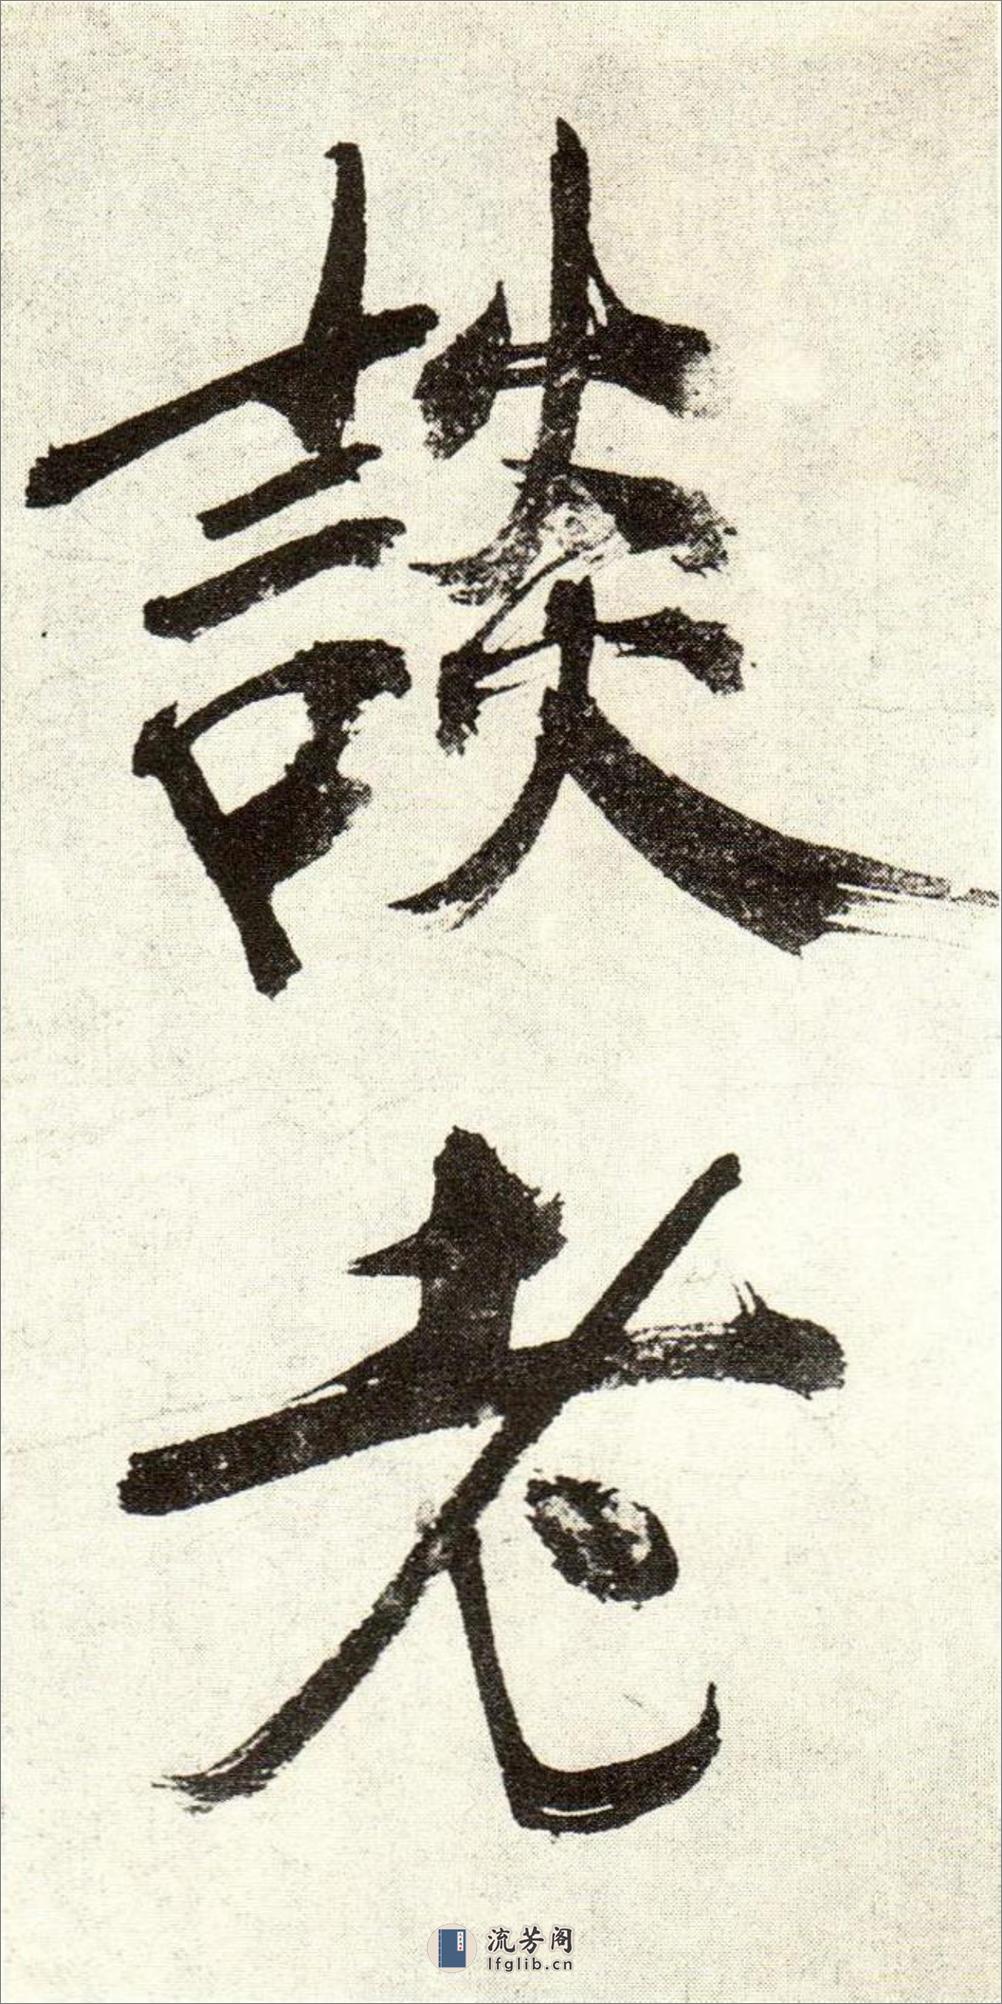 談老
流芳阁
lfglib.cn